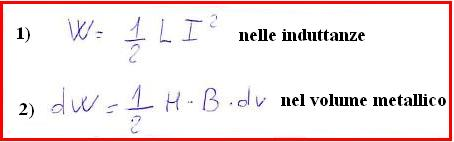 1) W = 1/2 L I² nelle induttanze
2) dW = 1/2 H · B · dv nel volume metallico